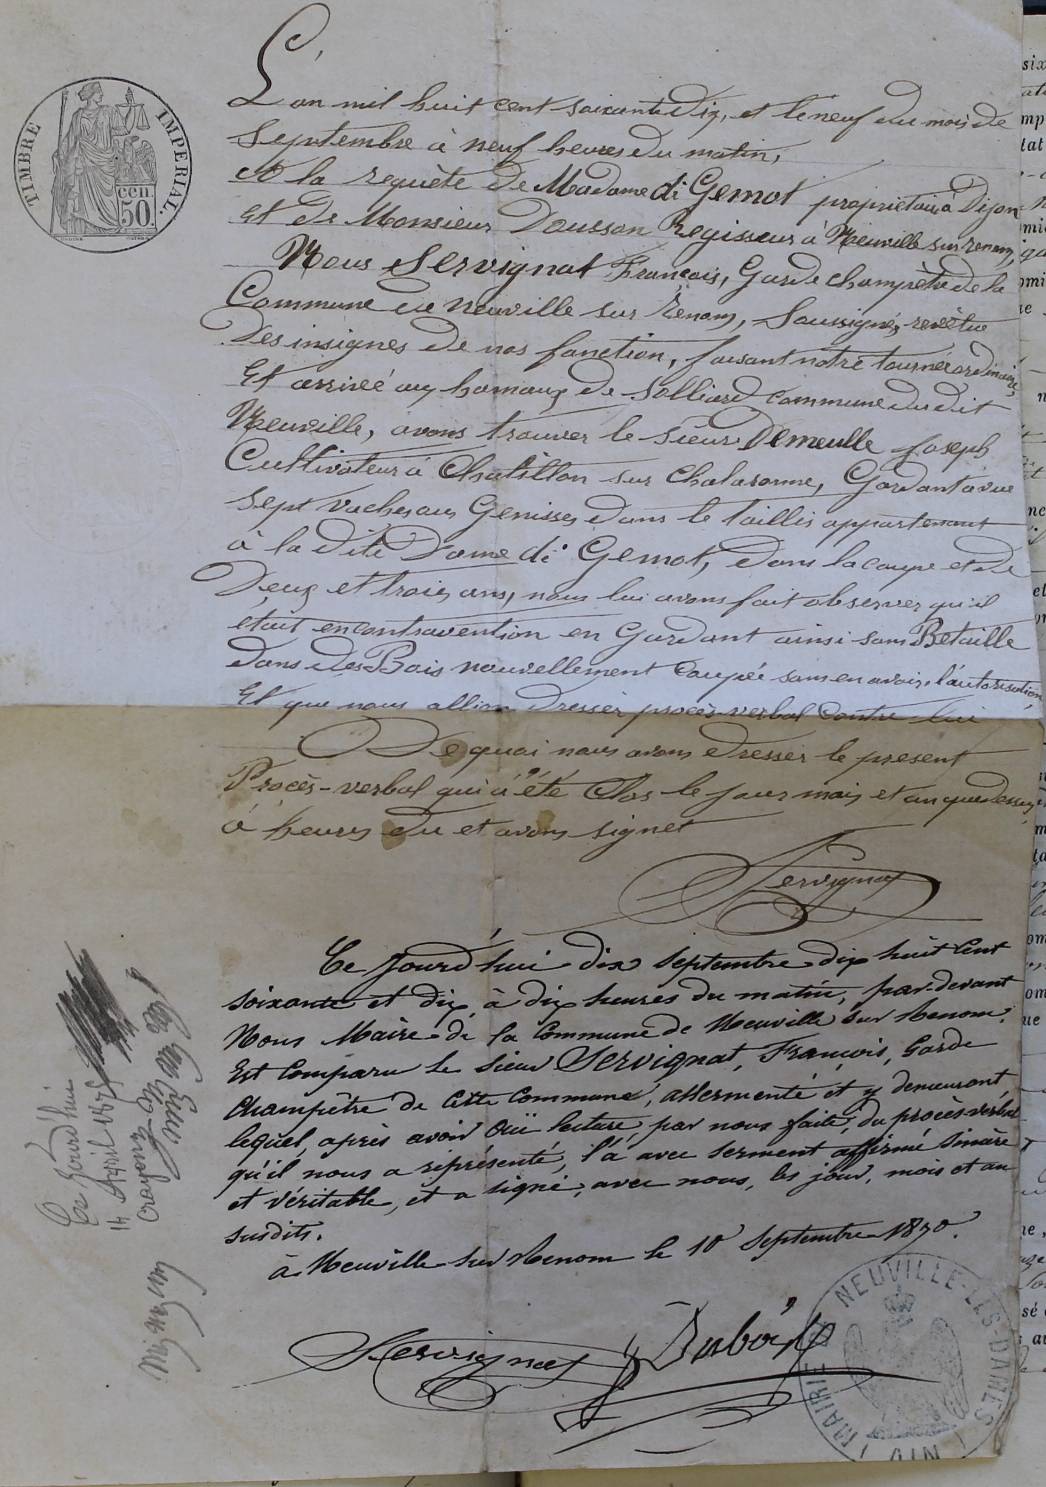 TIMBRE IMPERIAL.
cen
50
L'an mil huit cent soixante dix, et le neuf du mois de
Septembre à neuf heures du matin,
A la requête de Madame di Gemot propriétaire à Dijon
Et de Monsieur Dousson Regisseur à Neuville sur renom,
Nous Servignat Français, Garde champêtre de la
Commune de Neuville sur renom, Soussigné, revêtue
Des insignes de nos fonction, faisant notre tourné ordinaire,
Et arrivé aux hamaux de Solliard commune du dit
Neuville, avons trouver le sieur Demeulle Joseph
Cultivateur à Chatillon sur Chalaronne, Gardant à vue
Sept vaches ou Genisses dans le taillis appartenant
à la dite Dame di Gemot, dans la coupe et de
Deux et trois ans, nous lui avons fait observer qu'il
était en contravention en Gardant ainsi son Betaille
dans des Bois nouvellement Coupé sans en avoir l'autorisation
Et que nous allion dresser procès-verbal contre lui
De quoi nous avons dresser le present
Procès-verbal qui a été Clos le jour mois et an que dessus
à heures du et avons signet
Servignat
Ce Jourd'hui dix Septembre dix huit Cent
soixante et dix, à dix heures du matin, par-devant
Nous Maire de la Commune de Neuville sur Renom.
Est Comparu le sieur Servignat, François, Garde
Champêtre de Cette Commune, assermenté et y demeurant
lequel, après avoir ouï lecture, par nous faite, du procès-verbal
qu'il nous a représenté, l'a avec serment affirmé sincère
et véritable, et a signé, avec nous, les jour, mois et an
susdits.
à Neuville sur Renom le 10 Septembre 1870.
Servignat Dubois
MAIRIE NEUVILLE-LES-DAMES
AIN
Ce Jourd'hui
14 Avril 187
Crayon